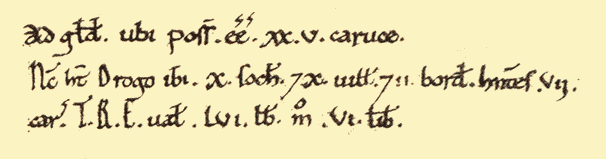 Ad gld̄. ubi poſſ. eē. xx.v. caruce.
Nc̄ ht̄ Drogo ibi. x. ſoch̄. ⁊ x. uill̄. ⁊ ii. bord̄. hn̄tes .vij.
car̄. T.R.E. ual̄. lvi. lib̄. m̊ .vi. lib̄.